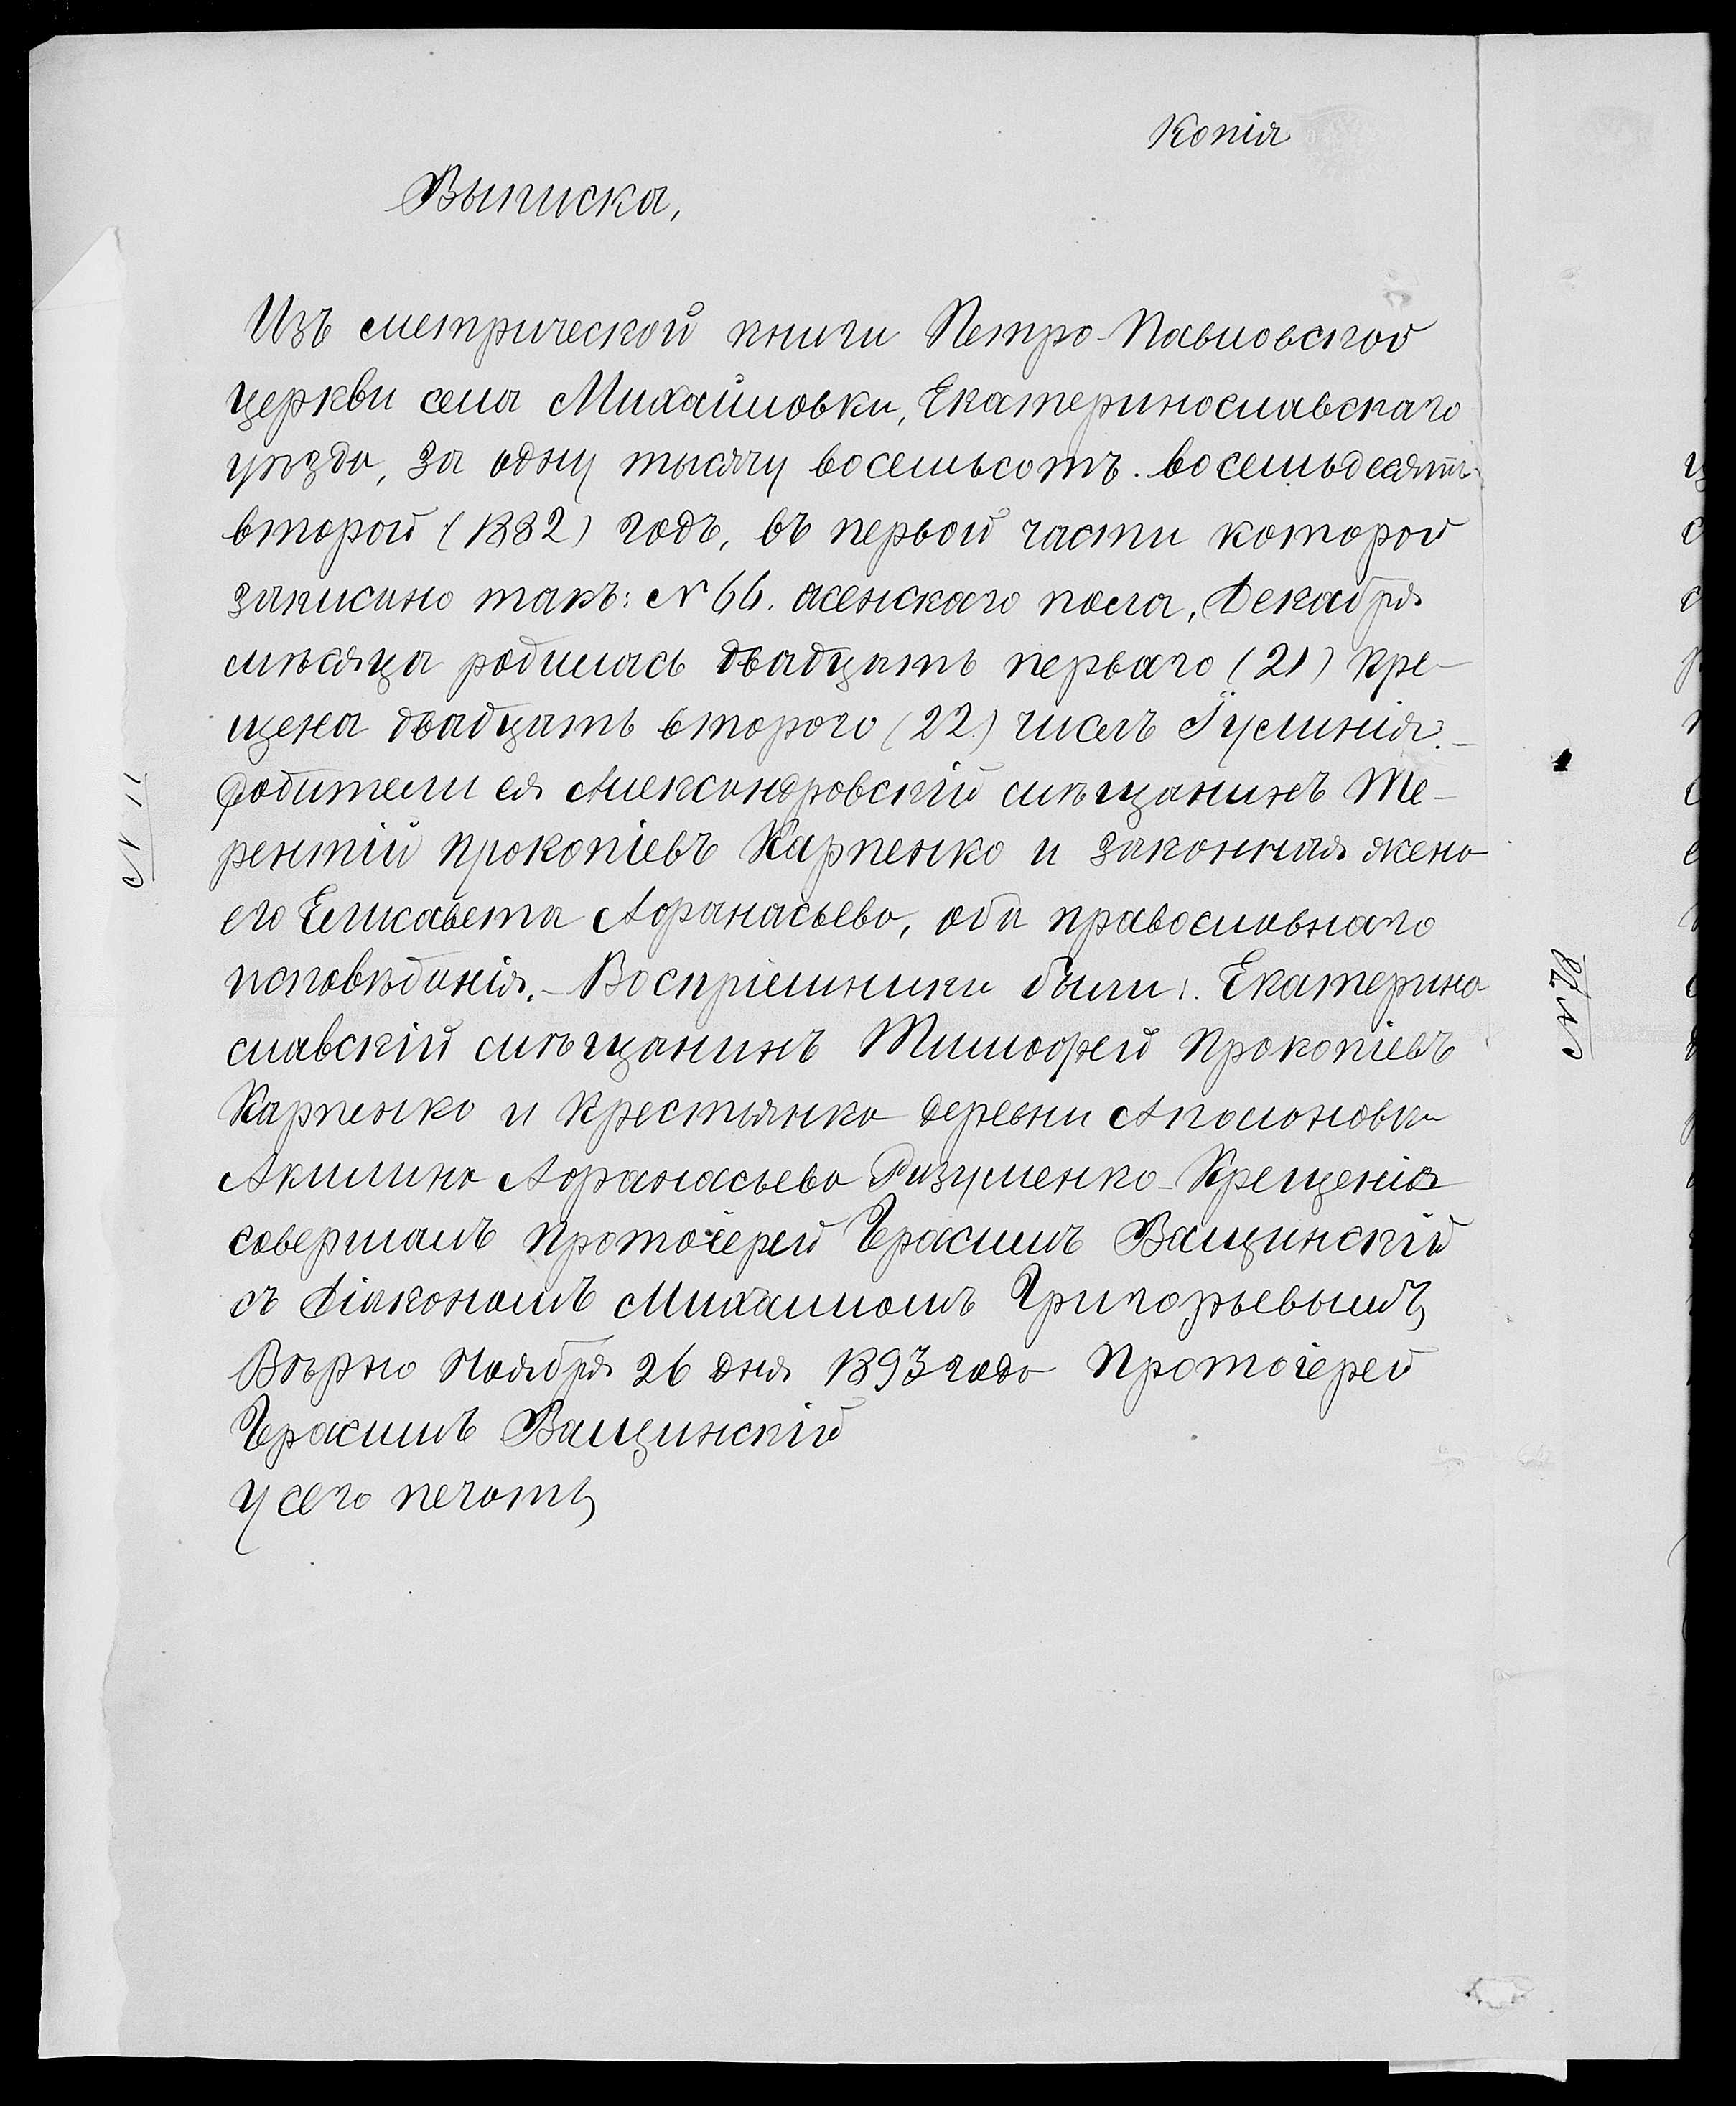 Копія
Выписка,
Изъ метрической книги Петро-Павловской
церкви села Михайловки, Екатеринославскаго
уѣзда, за одну тысячу восемьсотъ. восемьдесятъ
второй (1882) годъ, въ первой части которой
записано такъ: № 66. женскаго пола, Декабря
мѣсяца родилась двадцать перваго (21) кре-
щена двадцать второго (22) числъ Іустинія.-
Родители ея Александровскій мѣщанинъ Те-
рентій Прокопіевъ Карпенко и законная жена
его Елисавета Афанасьева, оба православнаго
исповѣданія.- Воспріемники были: Екатерино
славскій мѣщанинъ Тимофей Прокопіевъ
Карпенко и крестьянка деревни Аполоновки
Акилина Афанасьева Разуменко-Крещенія
совершалъ Протоіерей Герасимъ Ващинскій
съ Діакономъ Михаиломъ Григорьевымъ,
Вѣрно Ноября 26 дня 1893 года Протоіерей
Герасимъ Ващинскій
У сего печать
№ 11